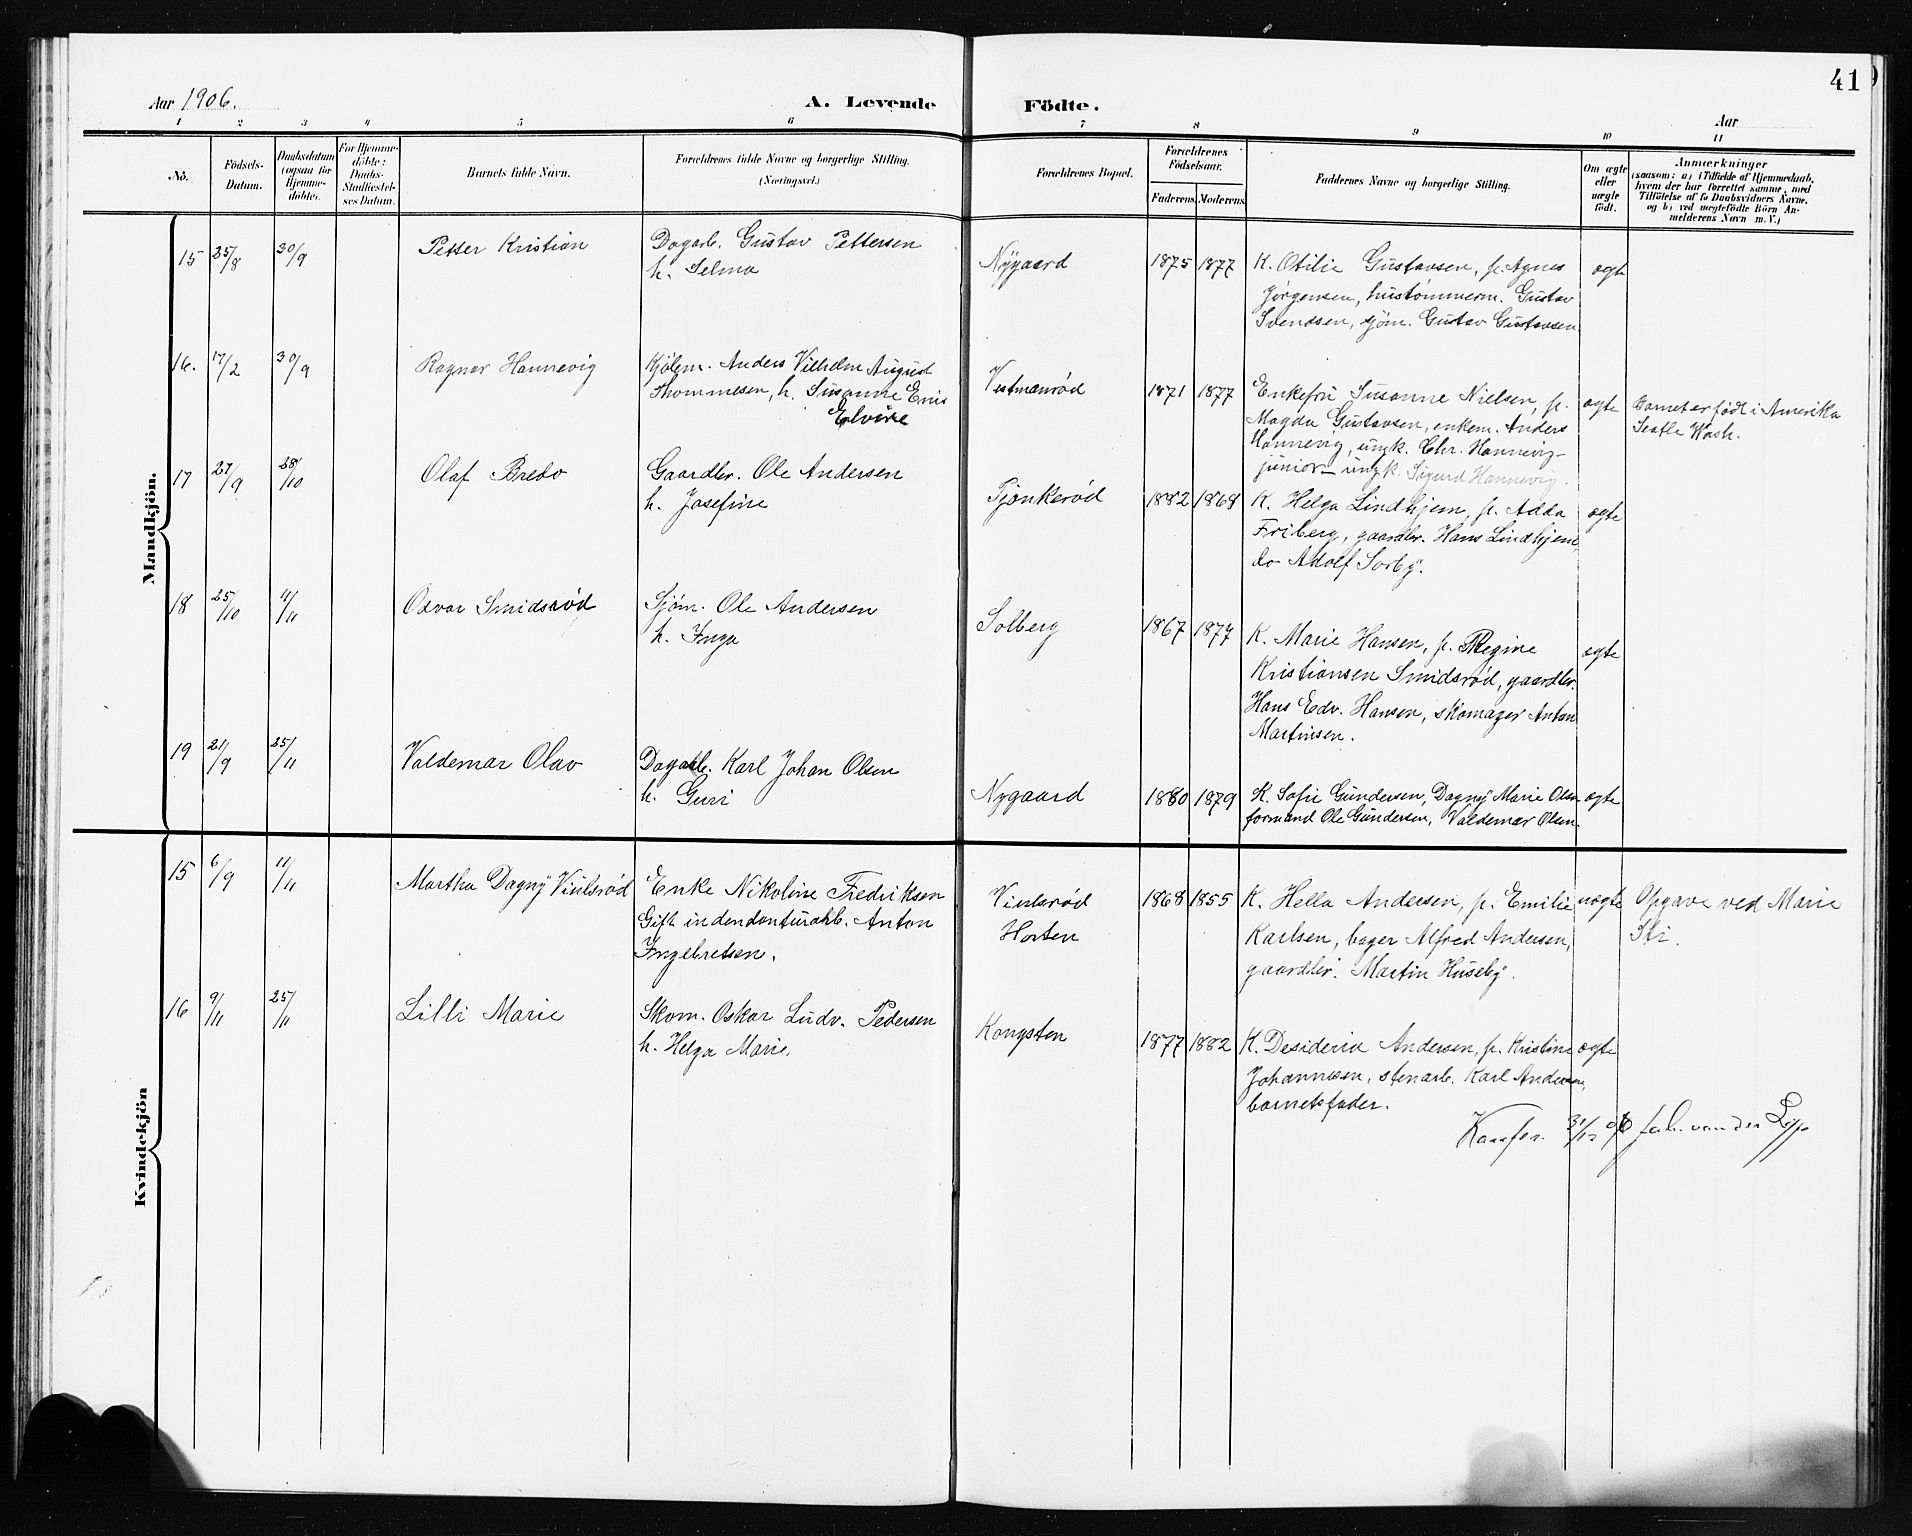 41
Aar 1906.
A. Levende Födte.
Aar
1 2 3 4 5 6 7 8 9 10 11
No.
Födsels-
Datum.
Daabsdatum
(ogsaa for
Hjemme-
döbte).
For Hjemme-
döbte:
Daabs-
Stadfæstel-
ses Datum.
Barnets fulde Navn.
Forældrenes fulde Navne og borgerlige Stilling.
(Næringsvei.)
Forældrenes Bopæl.
Forældrenes
Födselsaar.
Faderens Moderens
Faddernes Navne og borgerlige Stilling.
Om ægte
eller
uægte
födt.
Anmærkninger
(saasom: a) i Tilfælde af Hjemmedaab,
hvem der har forrettet samme, med
Tilföielse af to Daabsvidners Navne,
og b) ved uægtefödte Börn An-
melderens Navn m. V.)
Mandkjön.
15 25/8 30/9 Petter Kristian
Dagarb. Gustav Pettersen
h. Selma
Nygaard 1875 1877
K. Otilie Gustavsen, p. Agnes
Jørgensen, hustømmerm. Gustav
Svendsen, sjøm. Gustav Gustavsen
ægte
16. 17/2 30/9 Ragnar Hannevig
Kjølem. Anders Vilhelm August
Thommesen, h. Susanne Enis
Elvine
Vestmanrød 1871 1877
Enkefru Susanne Nielsen, p.
Magda Gustavsen, enkem. Anders
Hannevig, ungk. Chr. Hannevig
junior - ungk. Sigurd Hannevig.
ægte
Barnet er født i Amerika
Seatle Wash.
17 27/9 28/10 Olaf Bredo
Gaardbr. Ole Andersen
h. Josefine
Tjønkerød 1882 1868
K. Helga Lindhjem, p. Adda
Friberg, gaardbr. Hans Lindhjem,
do Adolf Sorby.
ægte
18 25/10 4/11 Odvar Smidsrød
Sjøm. Ole Andersen
h. Inga
Solberg 1867 1877
K. Marie Hansen, p. Regine
Kristiansen Smidsrød, gaardbr.
Hans Edv. Hansen, skomager Anton
Martinsen.
ægte
19 21/9 25/11 Valdemar Olav
Dagarb. Karl Johan Olsen
h. Guri
Nygaard 1880 1879
K. Sofie Gundersen, Dagny Marie Olsen
formand Ole Gundersen, Valdemar Olsen.
ægte
Kvindekjön
15 6/9 11/11 Martha Dagny Vinlsrød
Enke Nikoline Fredriksen
Gift indendanturarb. Anton
Ingebretsen.
Vinlsrød
Horten
1868 1855
K. Hella Andersen, p. Emilie
Karlsen, bager Alfred Andersen,
gaardbr. Martin Huseby.
uægte
Opgave ved Marie
Sti.
16 9/11 25/11 Lilli Marie
Skom. Oskar Ludv. Pedersen
h. Helga Marie.
Kongsten 1877 1882
K. Desideria Andersen, p. Kristine
Johannesen, stenarb. Karl Andersen,
barnets fader.
ægte
Konfer. 31/12 06 Joh. van der Lipp